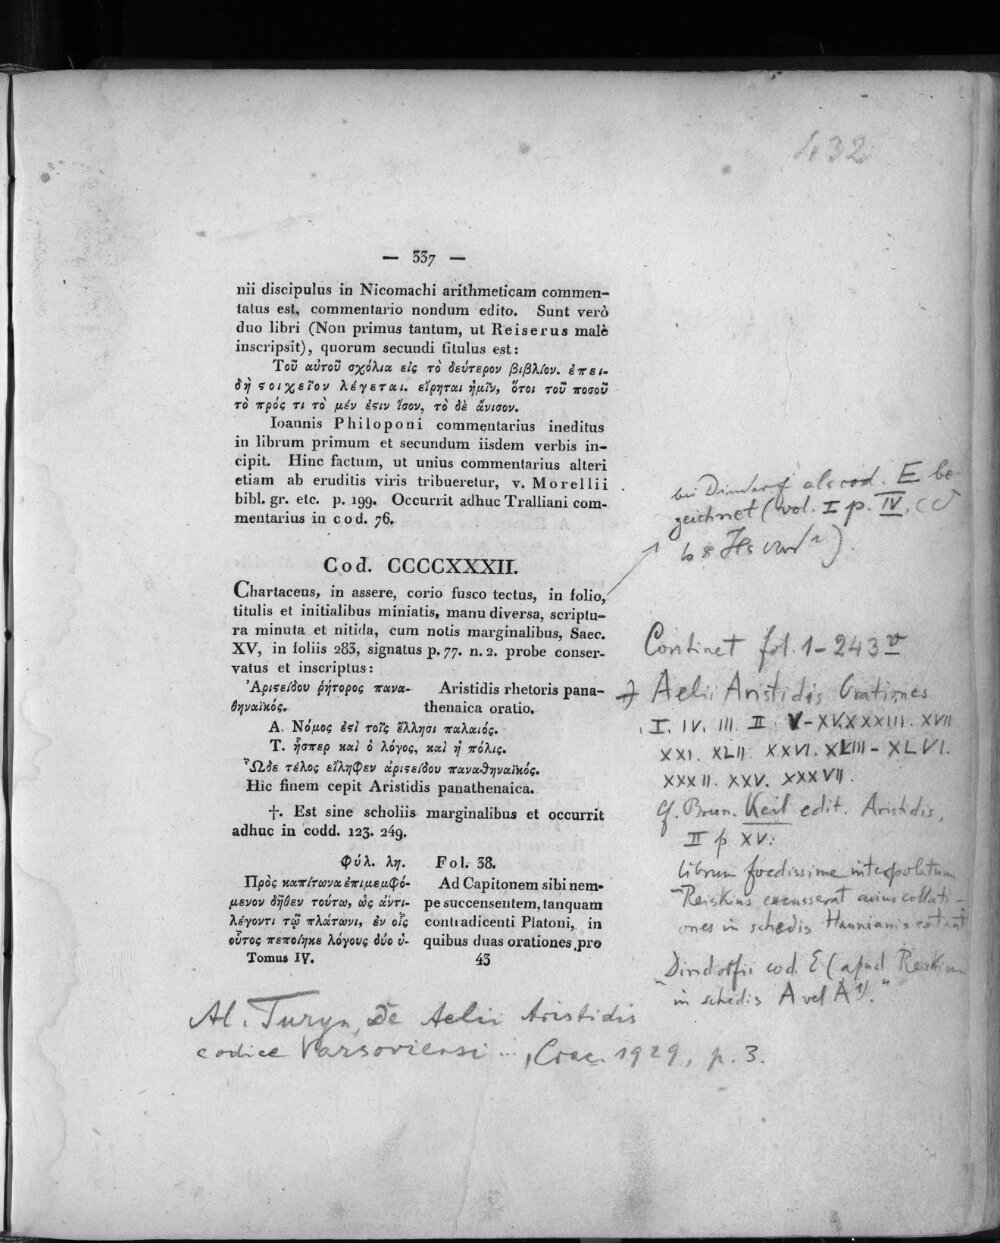 432
— 337 —
nii discipulus in Nicomachi arithmeticam commen-
tatus est, commentario nondum edito. Sunt verò
duo libri (Non primus tantum, ut Reiserus malè
inscripsit), quorum secundi titulus est:
Τοῦ αὐτοῦ σχόλια εἰς τὸ δεύτερον βιβλίον. ἐπει-
δὴ ϛοιχεῖον λέγεται. εἴρηται ἡμῖν, ὅτοι τοῦ ποσοῦ
τὸ πρός τι τὸ μέν ἐϛιν ἴσον, τὸ δὲ ἄνισον.
Ioannis Philoponi commentarius ineditus
in librum primum et secundum iisdem verbis in-
cipit. Hinc factum, ut unius commentarius alteri
etiam ab eruditis viris tribueretur, v. Morellii
bibl. gr. etc. p. 199. Occurrit adhuc Tralliani com-
mentarius in cod. 76.
bei Dindorf als cod. E be-
zeichnet (vol. I p. IV,
Cod. CCCCXXXII.
Chartaceus, in assere, corio fusco tectus, in folio,
titulis et initialibus miniatis, manu diversa, scriptu-
ra minuta et nitida, cum notis marginalibus, Saec.
XV, in foliis 283, signatus p. 77. n. 2. probe conser-
vatus et inscriptus:
Ἀριϛείδου ῥήτορος πανα- Aristidis rhetoris pana-
θηναϊκός. thenaica oratio.
Α. Νόμος ἐϛὶ τοῖς ἕλλησι παλαιός.
Τ. ἧσπερ καὶ ὁ λόγος, καὶ ἡ πόλις.
Ὧδε τέλος εἴληφεν ἀριϛείδου παναθηναϊκός.
Hic finem cepit Aristidis panathenaica.
†. Est sine scholiis marginalibus et occurrit
adhuc in codd. 123. 249.
Φύλ. λη. Fol. 38.
Πρὸς καπίτωνα ἐπιμεμφό- Ad Capitonem sibi nem-
μενον δῆθεν τούτω, ὡς ἀντι- pe succensentem, tanquam
λέγοντι τῷ πλάτωνι, ἐν οἷς contradicenti Platoni, in
οὗτος πεποίηκε λόγους δύο ὑ- quibus duas orationes pro
Tomus IV. 43
Continet fol. 1–243v
Aelii Aristidis Orationes
I. IV. III. II V–XV. XXXIII. XVII
XXI. XLII. XXVI. XLIII–XLVI.
XXXII. XXV. XXXVII.
Cf. Brun. Keil edit. Aristidis,
II p XV:
librum foedissime interpolatum
Reiskius excusserat cuius collati-
ones in schedis Haunianis extant
Dindorfii cod. E (apud Reiskium
in schedis A vel A1)."
Al. Turyn, De Aelii Aristidis
codice Varsoviensi ..., Crac. 1929, p. 3.